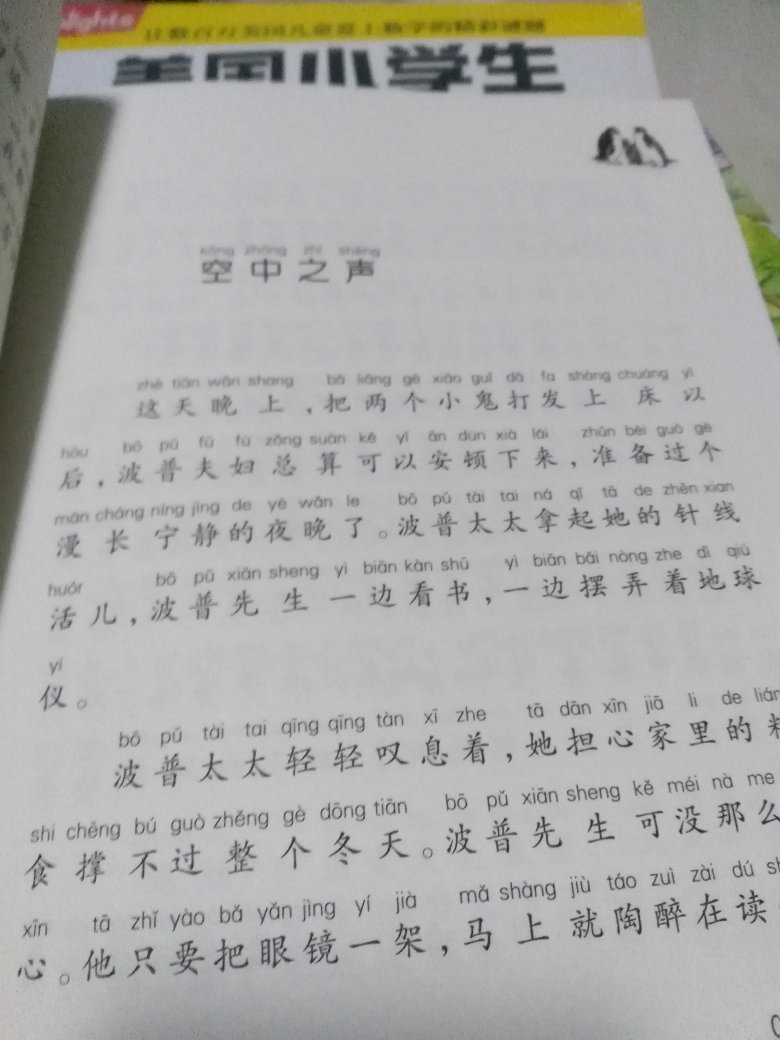 lights
美国小学生
kōng zhōng zhī shēng
空中之声
zhè tiān wǎn shang bǎ liǎng gè xiǎo guǐ dǎ fa shàng chuáng yǐ
这天晚上,把两个小鬼打发上床以
hòu bō pǔ fū fù zǒng suàn kě yǐ ān dùn xià lái zhǔn bèi guò gè
后,波普夫妇总算可以安顿下来,准备过个
màn cháng níng jìng de yè wǎn le bō pǔ tài tai ná qǐ tā de zhēn xian
漫长宁静的夜晚了。波普太太拿起她的针线
huór bō pǔ xiān sheng yì biān kàn shū yì biān bǎi nòng zhe dì qiú
活儿,波普先生一边看书,一边摆弄着地球
yí
仪。
bō pǔ tài tai qīng qīng tàn xī zhe tā dān xīn jiā li de liáng
波普太太轻轻叹息着,她担心家里的粮
shi chēng bú guò zhěng gè dōng tiān bō pǔ xiān sheng kě méi nà me
食撑不过整个冬天。波普先生可没那么
xīn tā zhǐ yào bǎ yǎn jìng yí jià mǎ shàng jiù táo zuì zài dú
心。他只要把眼镜一架,马上就陶醉在读